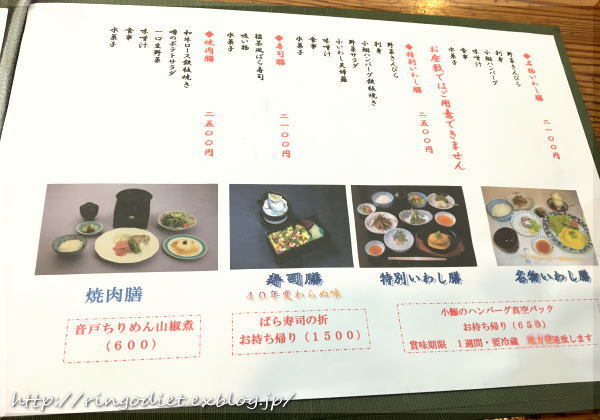 ◆名物いわし膳 二一〇〇円
野菜きんぴら
刺身
小鰯ハンバーグ
味噌汁
食事
水菓子
お座敷ではご用意できません
◆特別いわし膳 二五〇〇円
野菜きんぴら
刺身
小鰯ハンバーグ鉄板焼き
野菜サラダ
小いわし天婦羅
味噌汁
食事
水菓子
◆寿司膳 二一〇〇円
ばら寿司
吸い物
水菓子
◆焼肉膳 二五〇〇円
和牛ロース鉄板焼き
噂のポテトサラダ
一口生野菜
味噌汁
食事
水菓子
焼肉膳
寿司膳
40年変わらぬ味
特別いわし膳
名物いわし膳
音戸ちりめん山椒煮
（600）
ばら寿司の折
お持ち帰り（1500）
小鰯のハンバーグ真空パック
お持ち帰り（650）
賞味期限 1週間・要冷蔵 地方発送致します
http://ringodiet.exblog.jp/